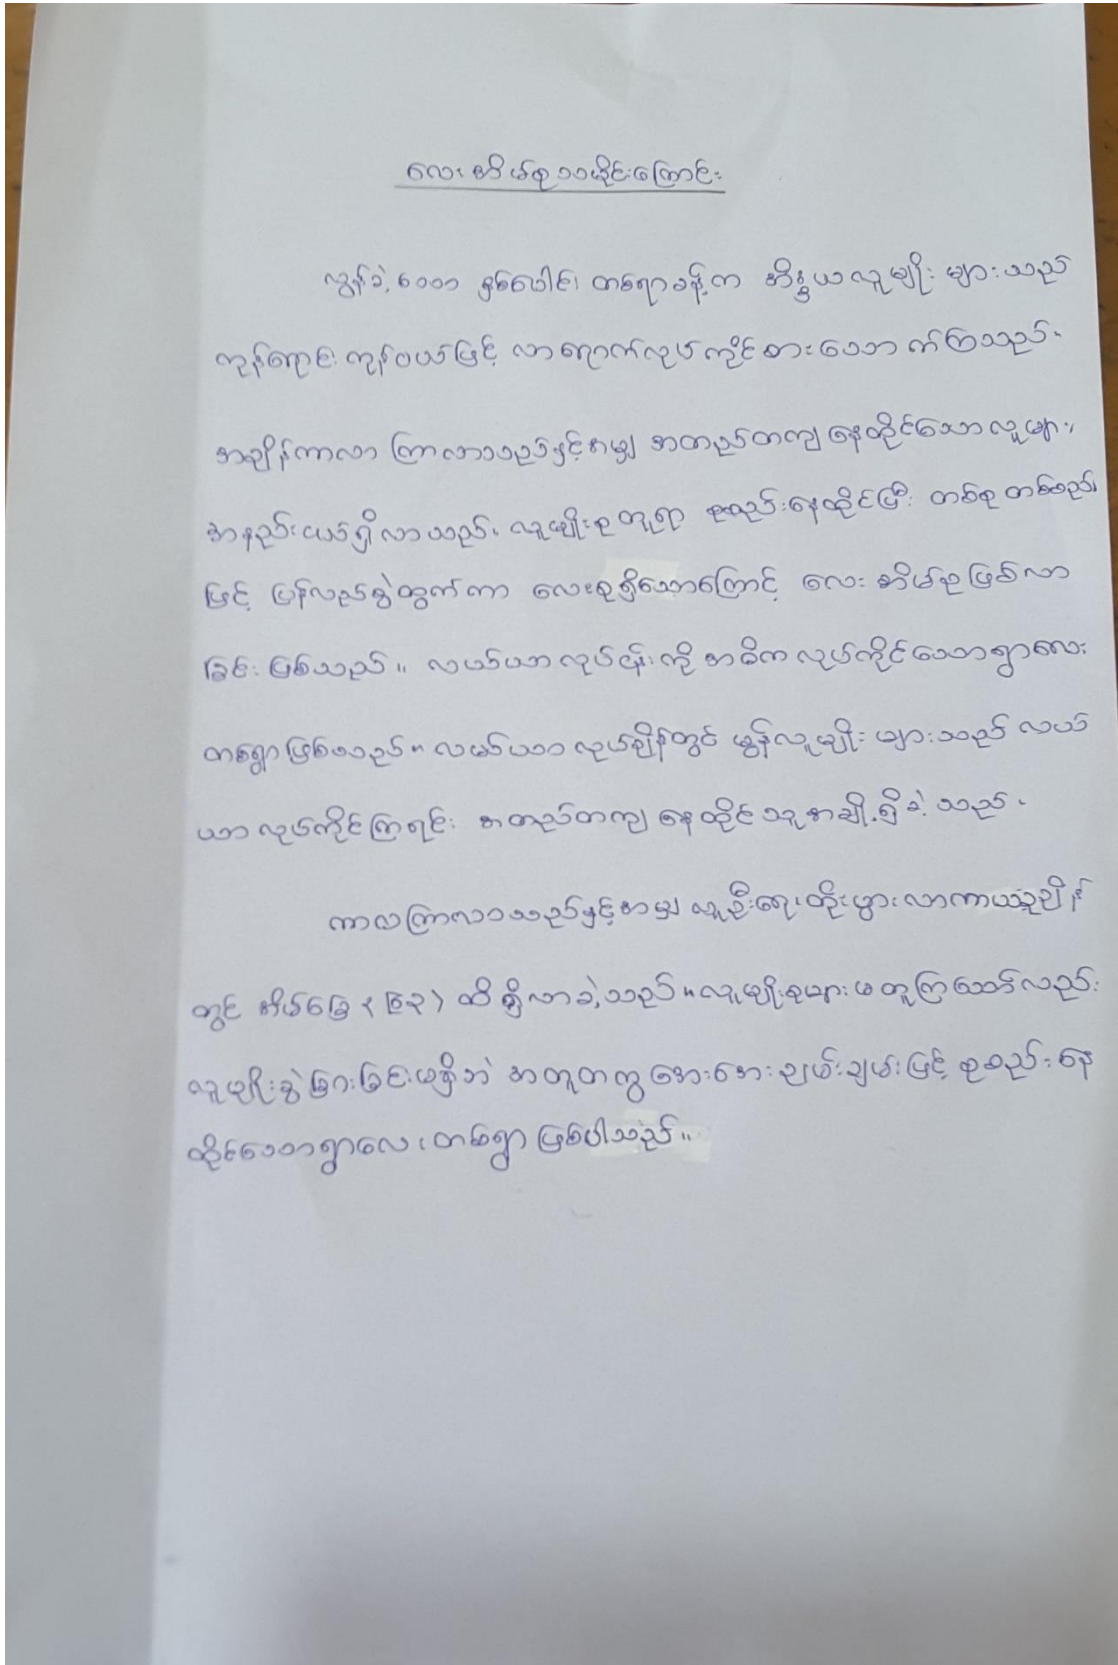 လေးအိမ်စုသမိုင်းကြောင်း
လွန်ခဲ့သော နှစ်ပေါင်း တစ်ရာခန့်က အိန္ဒိယလူမျိုး များသည်
ကုန်ရောင်း ကုန်ဝယ်ဖြင့် လာရောက်လုပ်ကိုင်စားသောက်ကြသည်။
အချိန်ကာလာ ကြာလာသည်နှင့်အမျှ အတည်တကျ နေထိုင်သောလူများ
အနည်းငယ်ရှိလာသည်။ လူမျိုးစုတူရာ စုစည်းနေထိုင်ပြီး တစ်စု တစ်စည်း
ဖြင့် ပြန်လည်ခွဲထွက်ကာ လေးစုရှိသောကြောင့် လေးအိမ်စုဖြစ်လာ
ခြင်း ဖြစ်သည်။ လယ်ယာလုပ်ငန်းကို အဓိကလုပ်ကိုင်သောရွာလေး
တစ်ရွာဖြစ်သည်။ လယ်ယာ လုပ်ချိန်တွင် မွန်လူမျိုး များသည် လယ်
ယာလုပ်ကိုင်ကြရင်း အတည်တကျ နေထိုင်သူအချို့ရှိခဲ့သည်။
ကာလကြာလာသည်နှင့်အမျှ လူဦးရေတိုးပွားလာကာယခုချိန်
တွင် အိမ်ခြေ ထိရှိလာခဲ့သည်။ လူမျိုးစုများမတူကြသော်လည်း
လူမျိုးခွဲခြားခြင်းမရှိဘဲ အတူတကွအေးအေးချမ်းချမ်းဖြင့် စုစည်းနေ
ထိုင်သောရွာလေးတစ်ရွာ ဖြစ်ပါသည်။